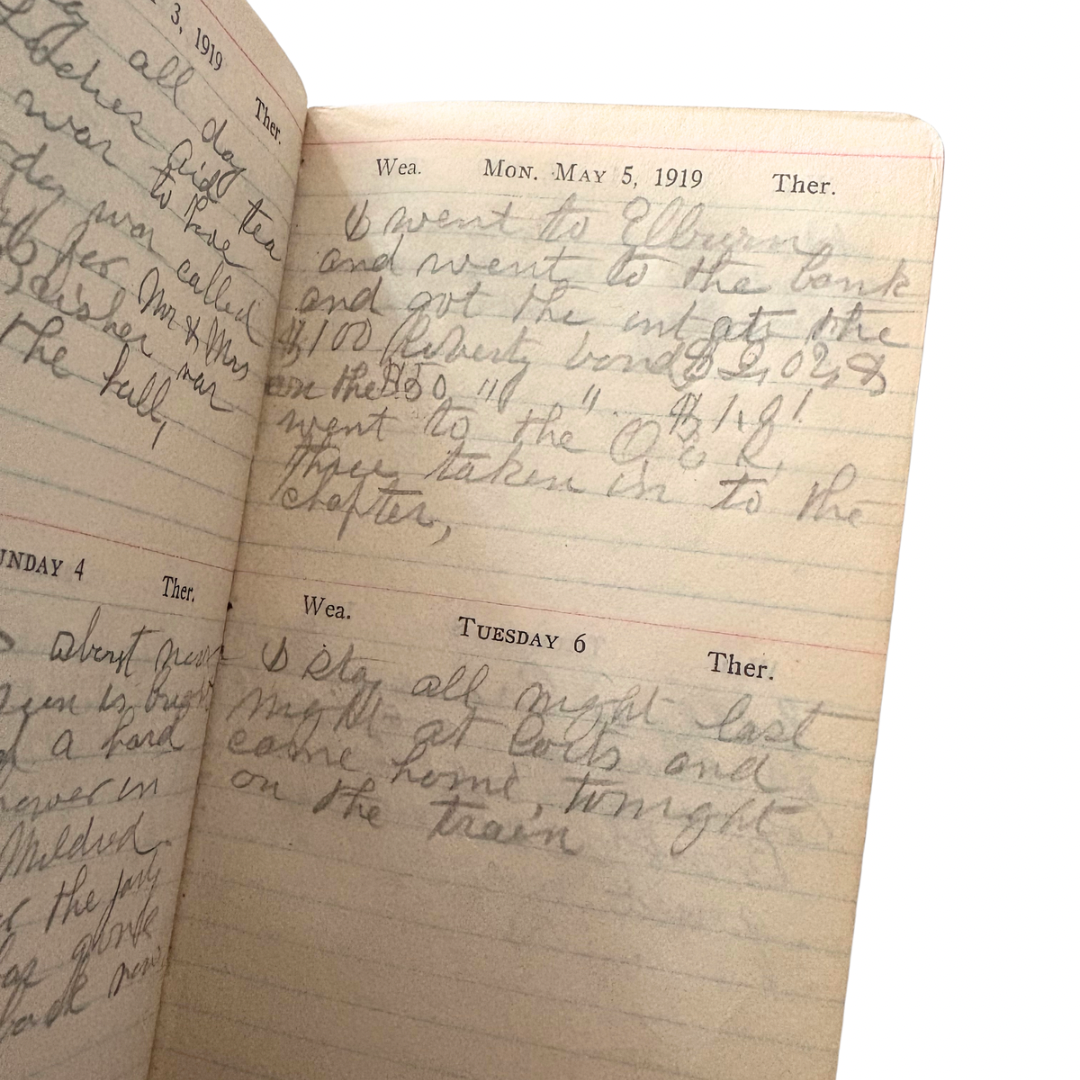 3, 1919
Ther.
all day
Ladies Aid tea
war to have
day was called
Mr & Mrs
was
the hall,
UNDAY 4
Ther.
about
is
d a hard
hower in
Mildred
the
back
Wea. MON. MAY 5, 1919 Ther.
I went to Elburn
and went to the bank
and got the int at the
$100 Liberty bond $2,02, &
on the $50 " " $1.01
went to the O E S,
three taken in to the
chapter,
Wea. TUESDAY 6 Ther.
I stay all night last
night at and
came home, tonight
on the train